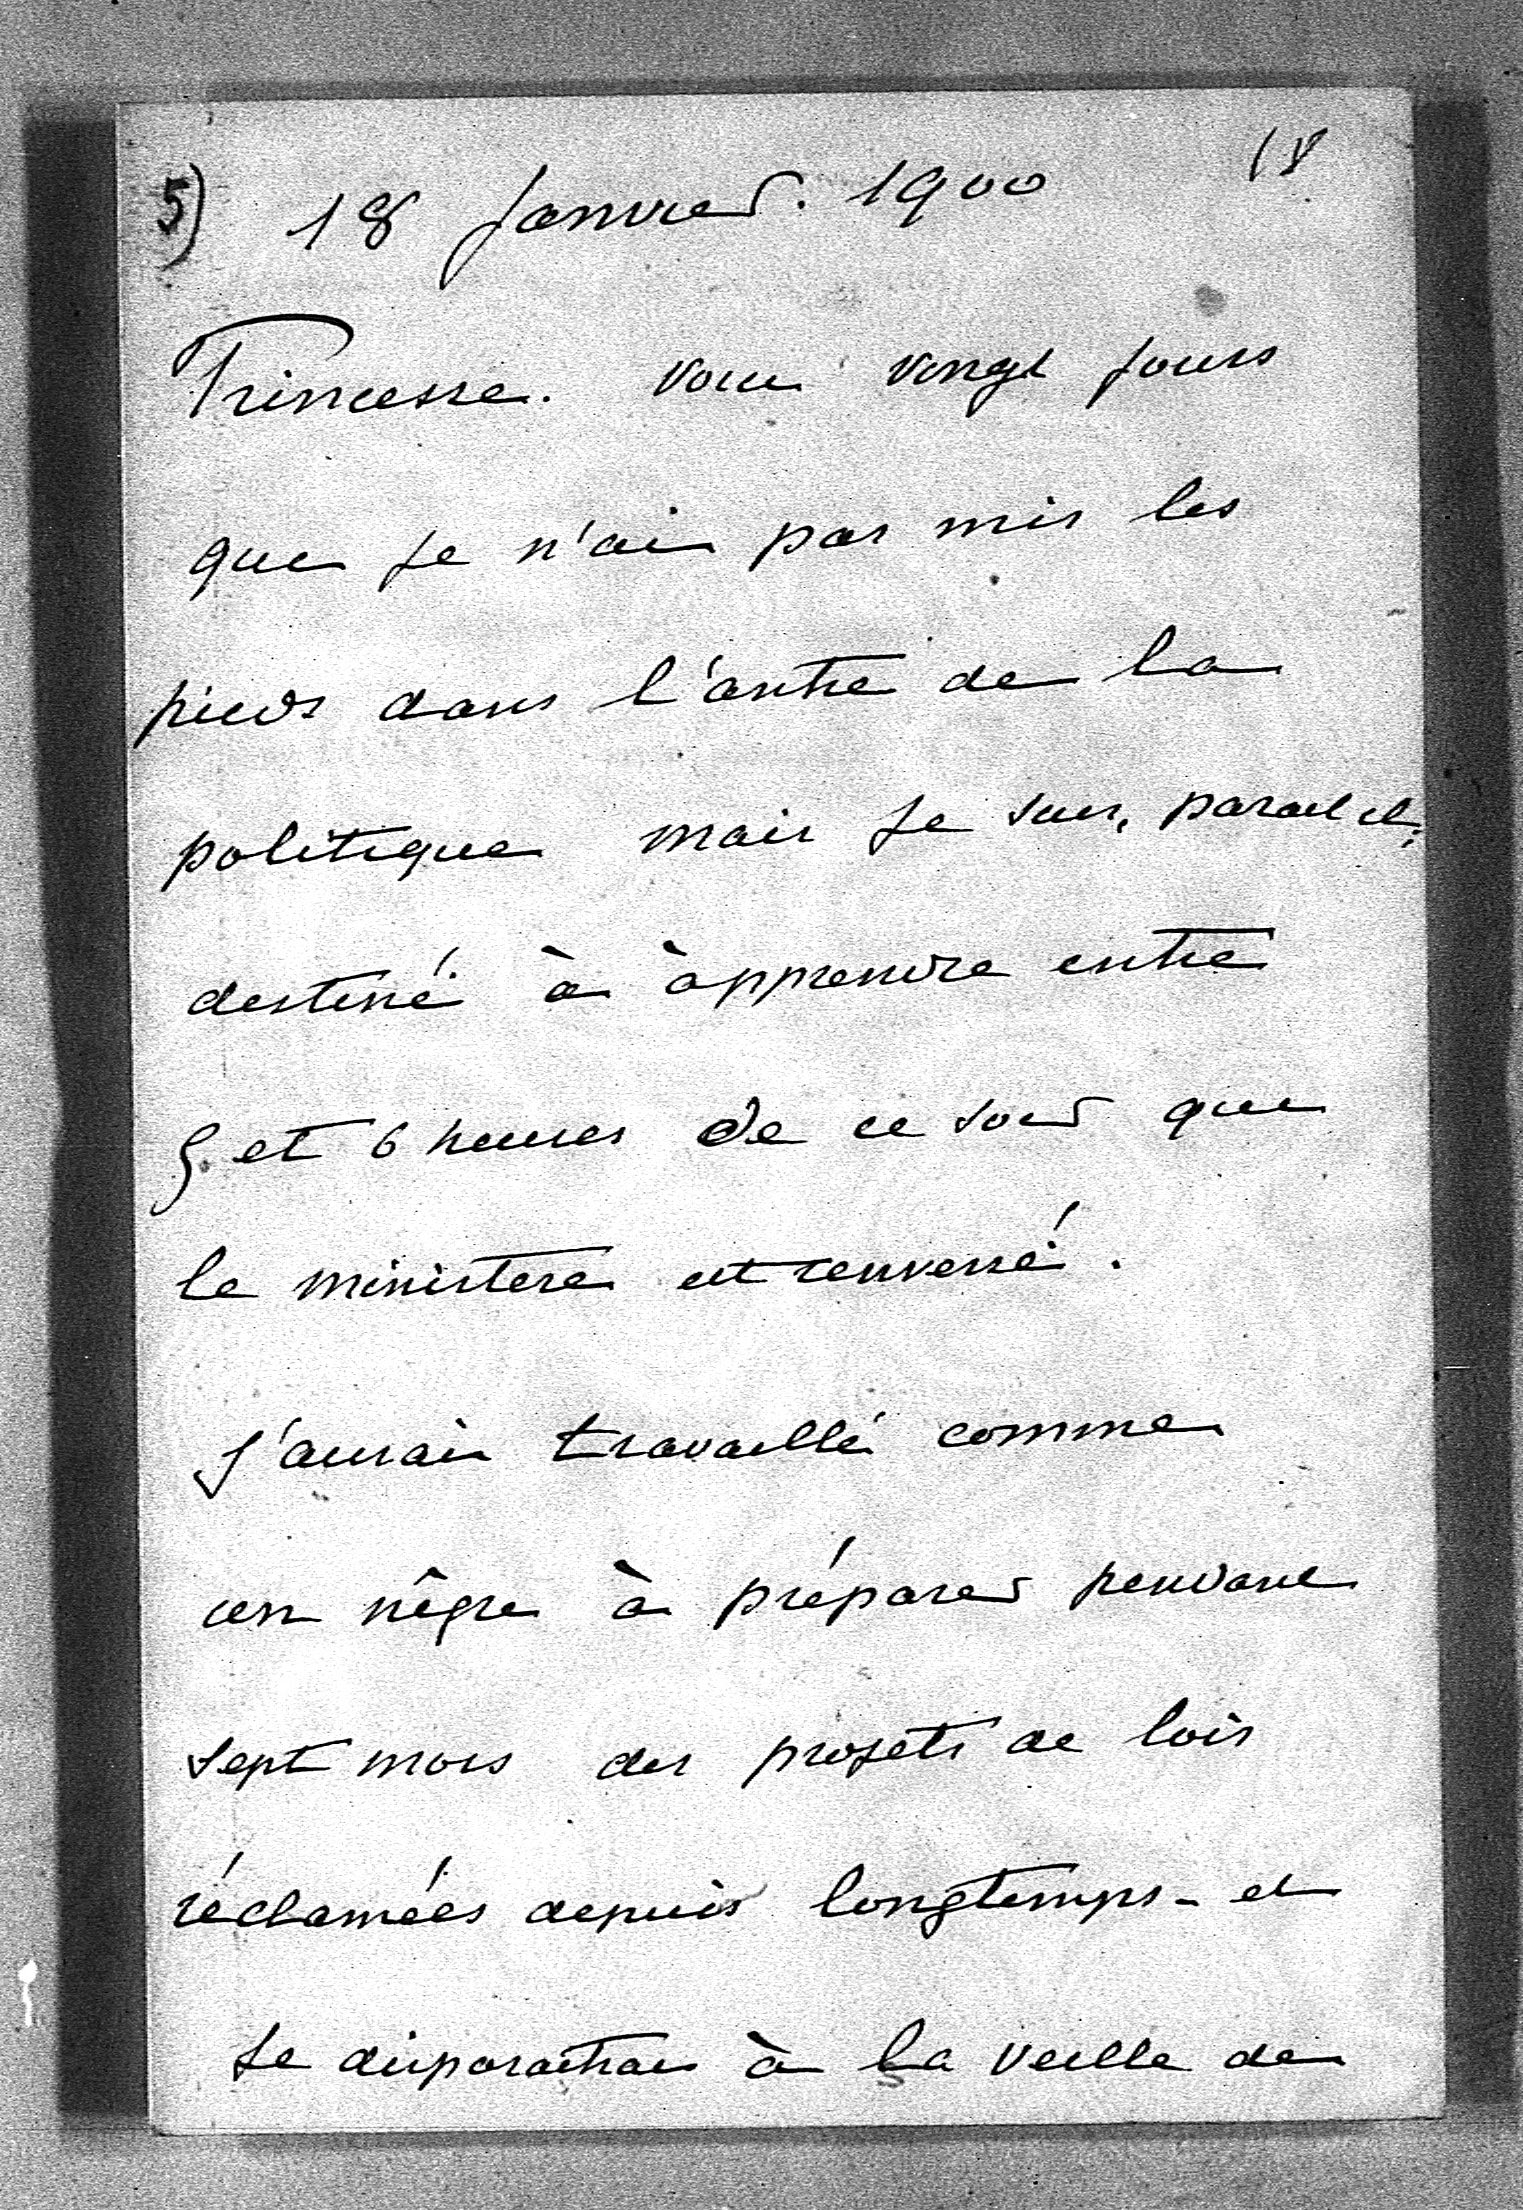 5) 18 Janvier. 1900
Princesse. voici vingt jours
que je n'ai pas mis les
pieds dans l'antre de la
politique mais je suis, parait il,
destiné à apprendre entre
5 et 6 heures de ce soir que
le ministere est renversé.
J'aurai travaillé comme
un nêgre à préparer pendant
sept mois des projets de lois
réclamées depuis longtemps - et
je disparaitrai à la veille de